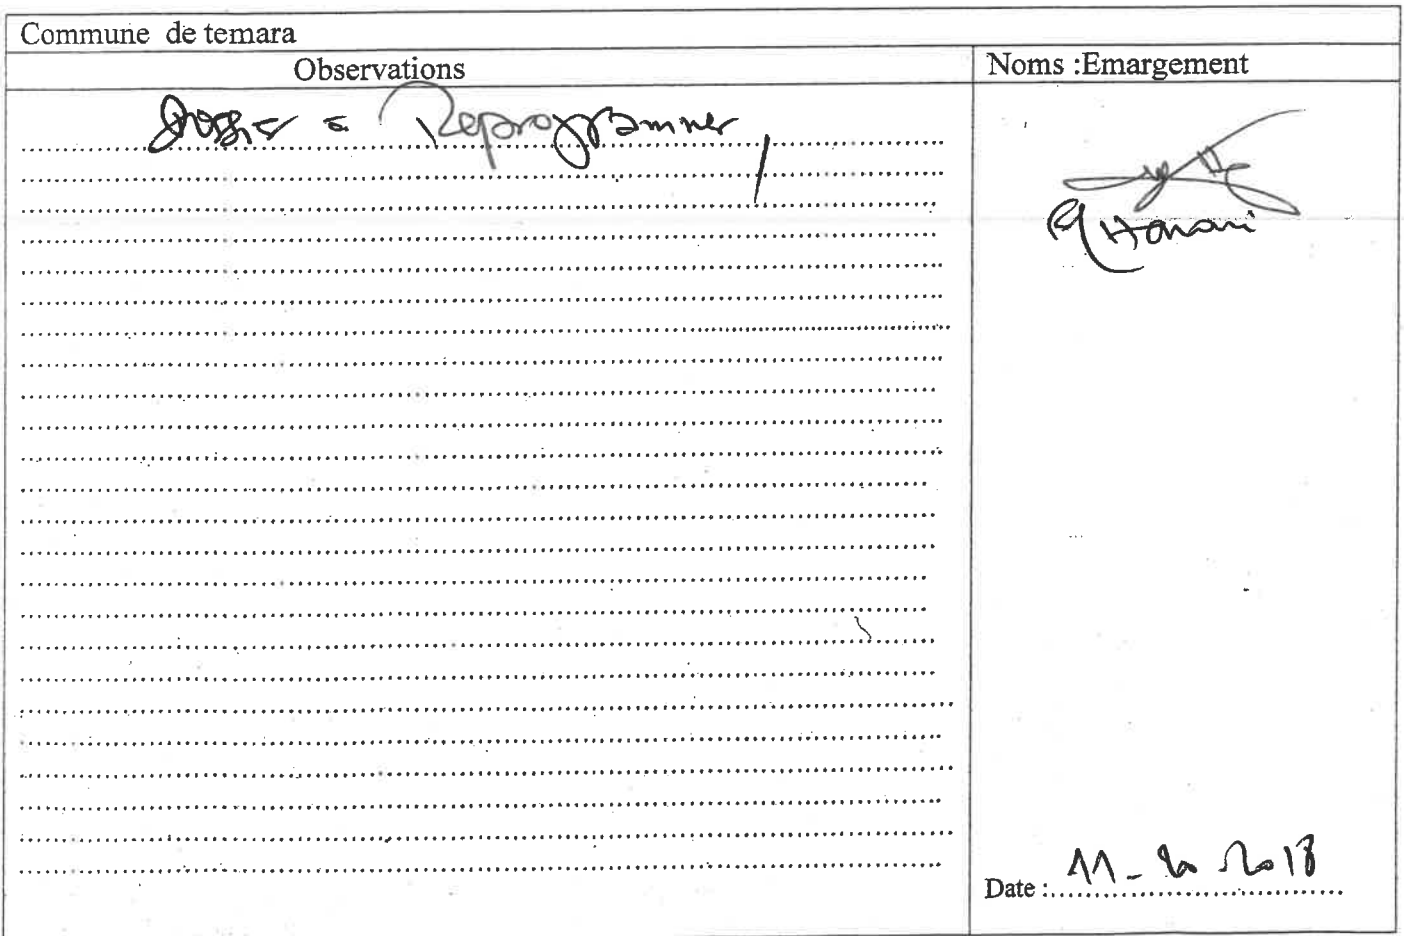 Commune de temara
Observations
Noms :Emargement
Dossier a Reprogrammer
Date : 11-10-2018